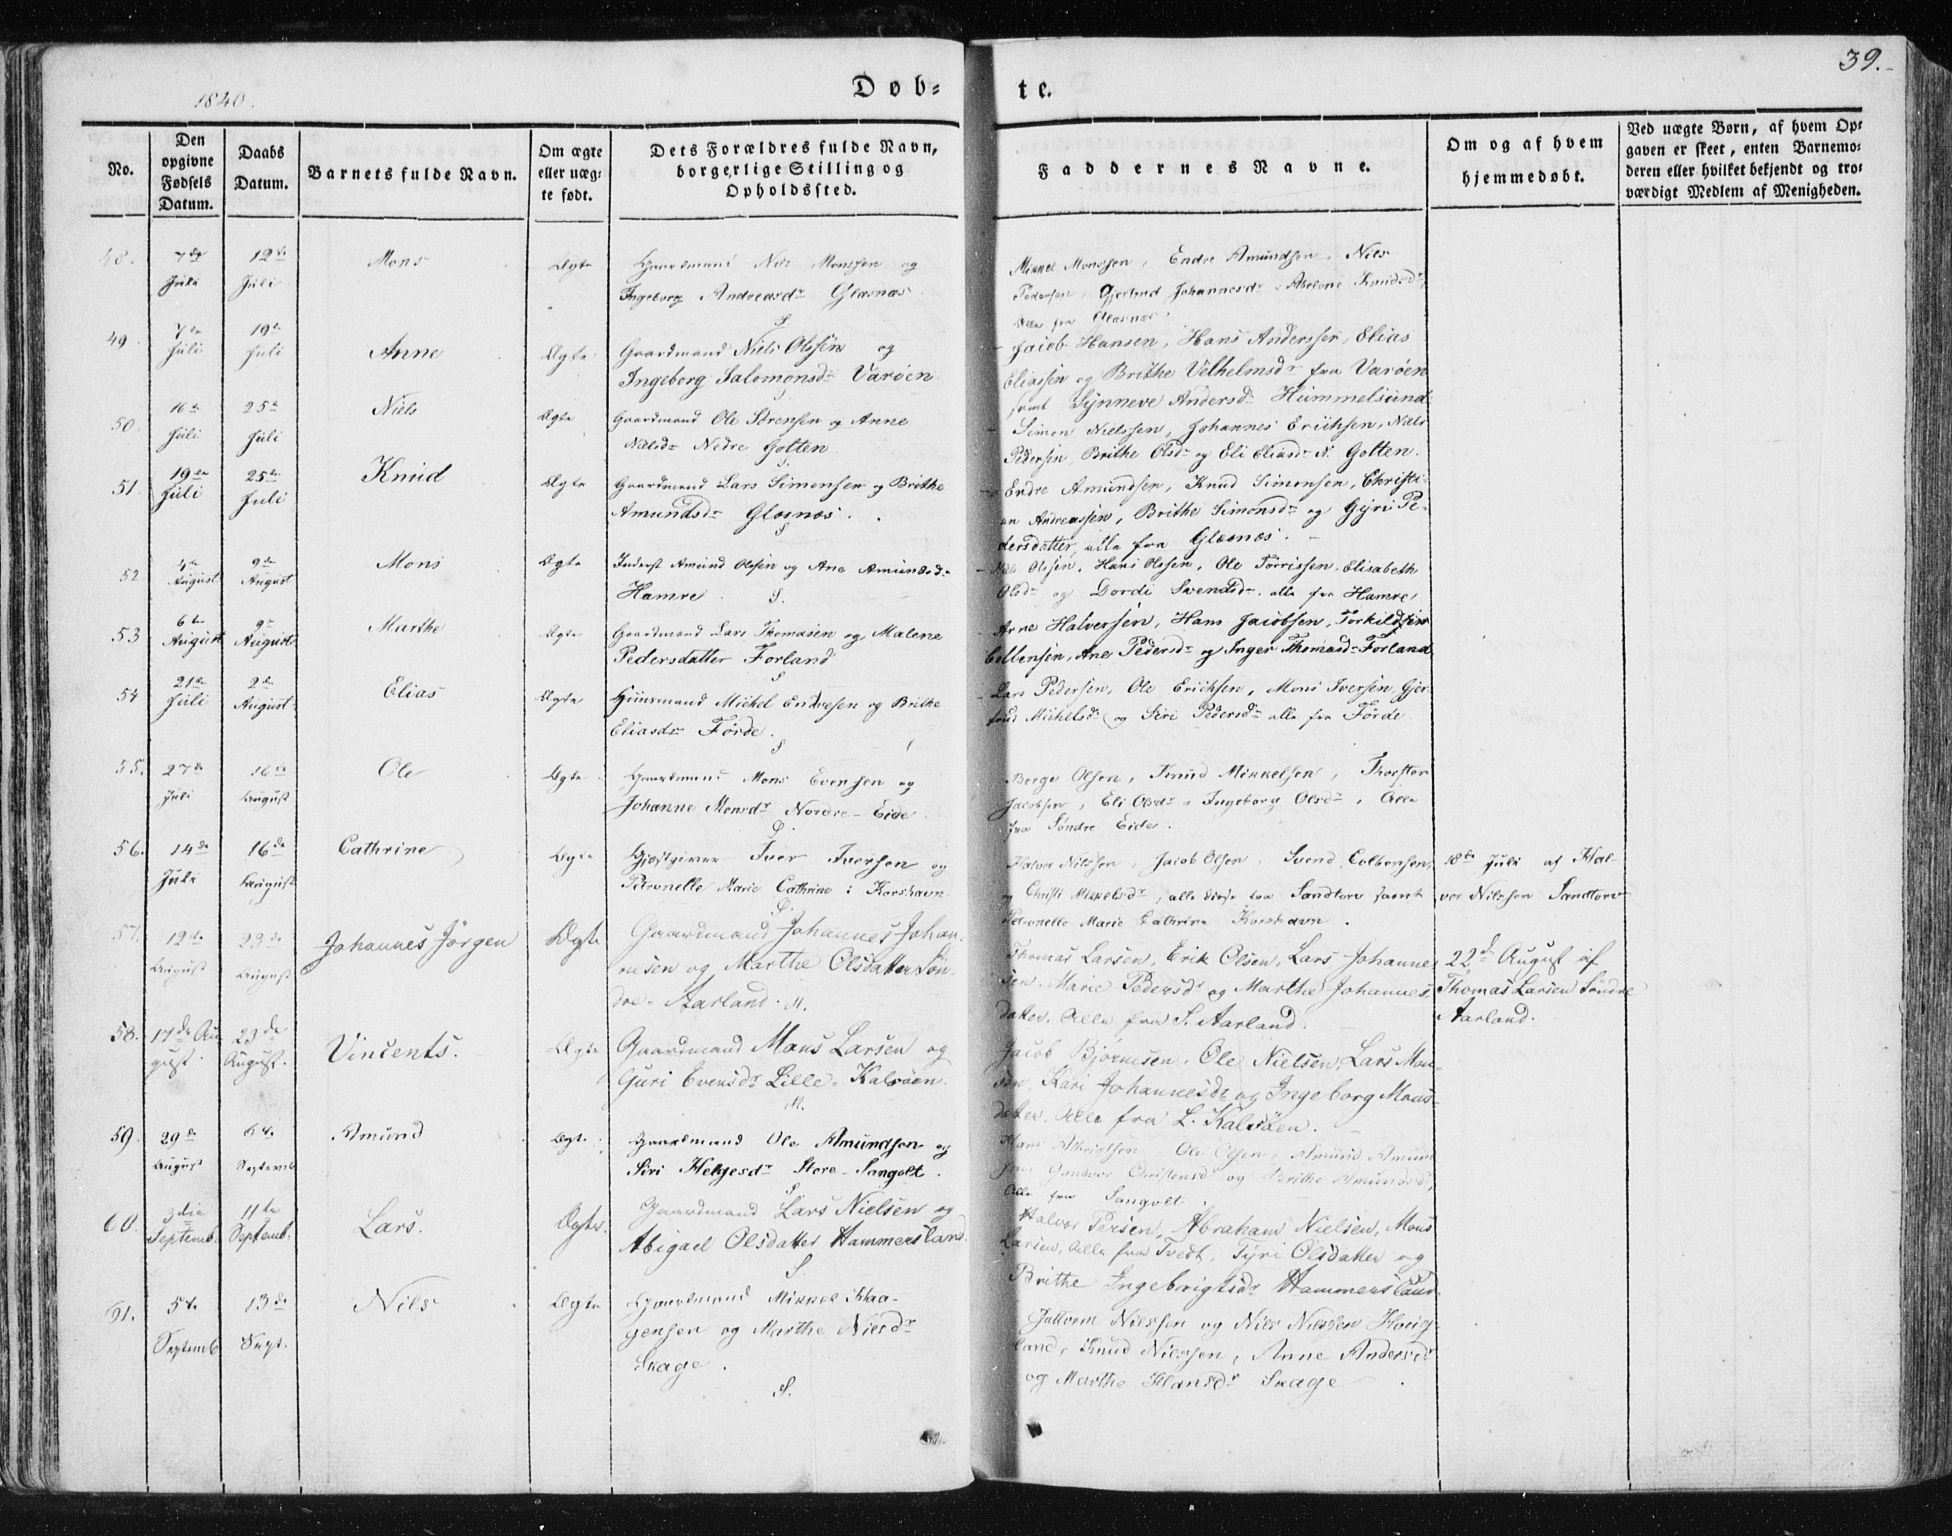 39.
1840.
Døb=
te.
No.
Den
opgivne
Fødsels
Datum.
Daabs
Datum.
Barnets fulde Navn.
Om ægte
eller uæg=
te født.
Dets Forældres fulde Navn,
borgerlige Stilling og
Opholdssted.
Faddernes Navne.
Om og af hvem
hjemmedøbt.
Ved uægte Børn, af hvem Op=
gaven er skeet, enten Barnemo=
deren eller hvilket bekjendt og tro=
værdigt Medlem af Menigheden.
48. 7de 12te Mons Ægte Gaardmand Nils Monssen og
Juli Juli Ingeborg Andreasdr Glæsnæs
Mikkel Monssen, Endre Amundsen, Nils
Pedersen, Gjertrud Johannesdr, Abelone Knudsdr,
Alle fra Glæsnæs.
49 7de 19de Anne Ægte Gaardmand Niels Olssen og
Juli Juli Ingeborg Salomonsdr Varøen
S
Jacob Hansen, Hans Anderssen, Elias
Eliassen og Brithe Vilhelmsdr fra Varøen
samt Synneve Andersdr Hummelsund
50. 16de 25de Niels Ægte Gaardmand Ole Sørensen og Anne
Juli Juli Nielsdr Nedre Golten
Simon Nielssen, Johannes Erichsen, Niels
Pedersen, Brithe Olsdr og Eli Eliasdr N. Golten.
51. 19de 25de Knud Ægte Gaardmand Lars Simonsen og Brithe
Juli Juli Amundsdr Glæsnæs.
S
Endre Amundsen, Knud Simonsen, Christi-
an Andreassen, Brithe Simonsdr og Gyri Pe-
dersdatter, alle fra Glæsnæs.
52 4de 9de Mons Ægte Inderst Amund Olssen og Ane Amundsd-
August August Hamre. S.
Olssen, Hans Olssen, Ole Torrissen, Elisabeth
Olsdr og Dordi Svendsdr alle fra Hamre
53 6te 9de Marthe Ægte Gaardmand Lars Thomasen og Malene
August August Pedersdatter Forland
S
Arne Halversen, Hans Jacobsen, Torkildsen
Colbensen, Ane Pedersdr og Inger Thomasdr Forland
54 21de 2de Elias Ægte Huusmand Michel Endresen og Brithe
Juli August Eliasdr Førde.
S
Lars Pedersen, Ole Erichsen, Mons Iversen, Gjer-
trud Michelsdr og Siri Pedersdr alle fra Førde
55. 27de 16de Ole Ægte Gaardmand Mons Evensen og
Juli August Johanne Monsdr Nordre-Eide.
S.
Børge Olsen, Knud Mikkelsen, Thorsten
Jacobsen, Eli Olsdr, Ingeborg Olsdr, Alle
fra Søndre Eide.
56. 14de 16de Cathrine Ægte Gjestgiver Iver Iversen og
Juli August Petronelle Marie Cathrine i Korshavn
S.
Halvor Nilssen, Jacob Olsen, Svend Colbensen,
og Christi Mikkelsdr, alle disse fra Sandtorv samt
Petronelle Marie Cathrine Korshavn.
18de Juli af Hal-
vor Nilssen Sandtorv
57. 12te 23de Johannes Jörgen Ægte Gaardmand Johannes Johan-
August August nesen og Marthe Olsdatter Søn-
dre-Aarland. M.
Thomas Larsen, Erik Olsen, Lars Johanne-
sen, Marie Pedersdr og Marthe Johannes-
datter. Alle fra S. Aarland.
22de August af
Thomas Larsen Søndre
Aarland.
58. 17de Au- 23de Vincents. Ægte Gaardmand Mons Larsen og
gust. August. Guri Evensdr Lille-Kalsöen.
M.
Jacob Björnesen, Ole Nielsen, Lars Mon-
sen, Kari Johannesdr og Ingeborg Mons-
datter. Alle fra L. Kalsöen.
59. 29de 6te Amund Ægte. Gaardmand Ole Amundsen og
August Septemb Siri Helgesdr Store-Sangolt.
S
Hans Olsen, Amund Amund-
sen, Gundvor Christensdr og Brithe Amundsdr,
Alle fra Sangolt.
60. 3die 11te Lars. Ægte. Gaardmand Lars Nielsen og
Septemb. Septemb. Abigael Olsdatter Hammersland.
S.
Halvor Persen, Abraham Nielsen, Mons
Larsen, Alle fra Tvedt, Tyri Olsdatter og
Brithe Ingebrigtsdr Hammersland
61. 5te 13de Nils Ægte Gaardmand Mikkel Haa-
Septemb Sept. gensen og Marthe Nilsdr
Skage.
S.
Guttorm Nilssen og Nils Nilssen Houg-
land, Knud Nilssen, Anne Andersdr
og Marthe Hansdr Skage